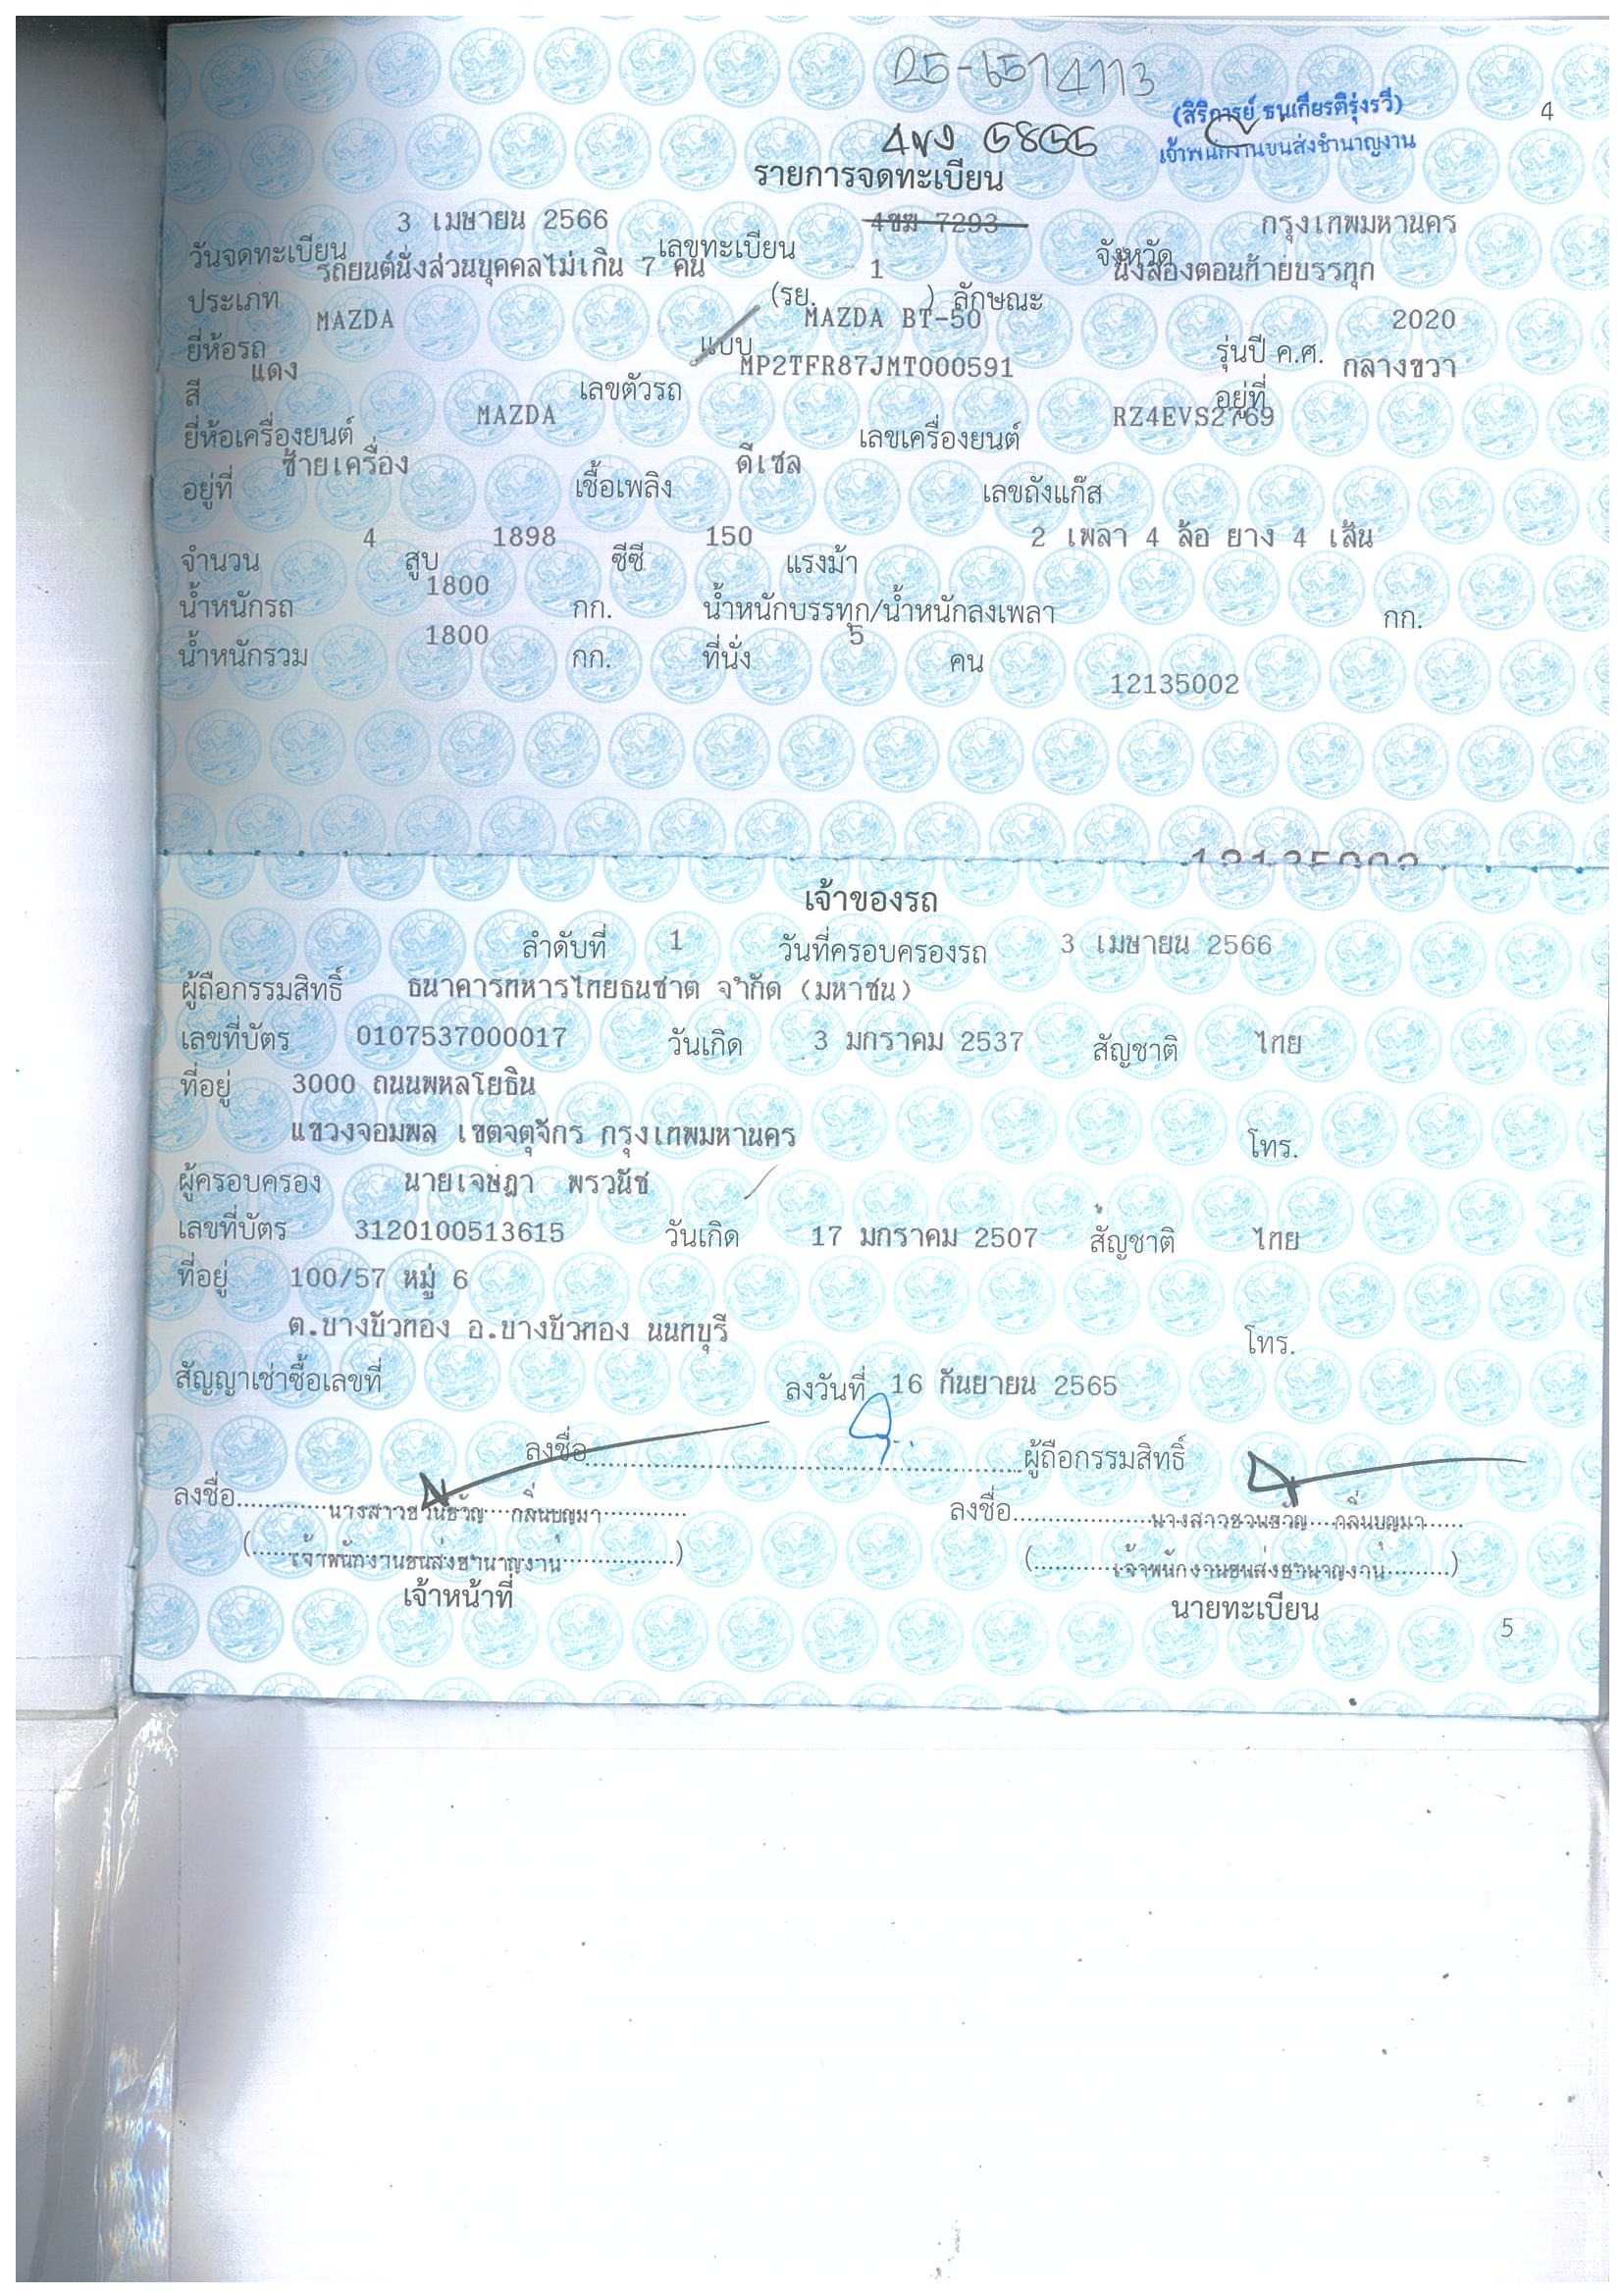 4
(สิริการย์ ธนเกียรติรุ่งรวี)
เจ้าพนักงานขนส่งชำนาญงาน
รายการจดทะเบียน
วันจดทะเบียน 3 เมษายน 2566 เลขทะเบียน 4ขฆ 7293 จังหวัด กรุงเทพมหานคร
ประเภท รถยนต์นั่งส่วนบุคคลไม่เกิน 7 คน (รย. 1 ) ลักษณะ นั่งสองตอนท้ายบรรทุก
ยี่ห้อรถ MAZDA แบบ MAZDA BT-50 รุ่นปี ค.ศ. 2020
สี แดง เลขตัวรถ MP2TFR87JMT000591 อยู่ที่ กลางขวา
ยี่ห้อเครื่องยนต์ MAZDA เลขเครื่องยนต์ RZ4EVS2769
อยู่ที่ ซ้ายเครื่อง เชื้อเพลิง ดีเซล เลขถังแก๊ส
จำนวน 4 สูบ 1898 ซีซี 150 แรงม้า 2 เพลา 4 ล้อ ยาง 4 เส้น
น้ำหนักรถ 1800 กก. น้ำหนักบรรทุก/น้ำหนักลงเพลา กก.
น้ำหนักรวม 1800 กก. ที่นั่ง 5 คน
12135002
เจ้าของรถ
ลำดับที่ 1 วันที่ครอบครองรถ 3 เมษายน 2566
ผู้ถือกรรมสิทธิ์ ธนาคารทหารไทยธนชาต จำกัด (มหาชน)
เลขที่บัตร 0107537000017 วันเกิด 3 มกราคม 2537 สัญชาติ ไทย
ที่อยู่ 3000 ถนนพหลโยธิน
แขวงจอมพล เขตจตุจักร กรุงเทพมหานคร โทร.
ผู้ครอบครอง นายเจษฎา พรวนิช
เลขที่บัตร 3120100513615 วันเกิด 17 มกราคม 2507 สัญชาติ ไทย
ที่อยู่ 100/57 หมู่ 6
ต.บางบัวทอง อ.บางบัวทอง นนทบุรี โทร.
สัญญาเช่าซื้อเลขที่ ลงวันที่ 16 กันยายน 2565
ลงชื่อ ผู้ถือกรรมสิทธิ์
ลงชื่อ นางสาวชวนขวัญ กลิ่นบุญมา ลงชื่อ นางสาวชวนขวัญ กลิ่นบุญมา
(เจ้าพนักงานขนส่งชำนาญงาน) (เจ้าพนักงานขนส่งชำนาญงาน)
เจ้าหน้าที่ นายทะเบียน
5